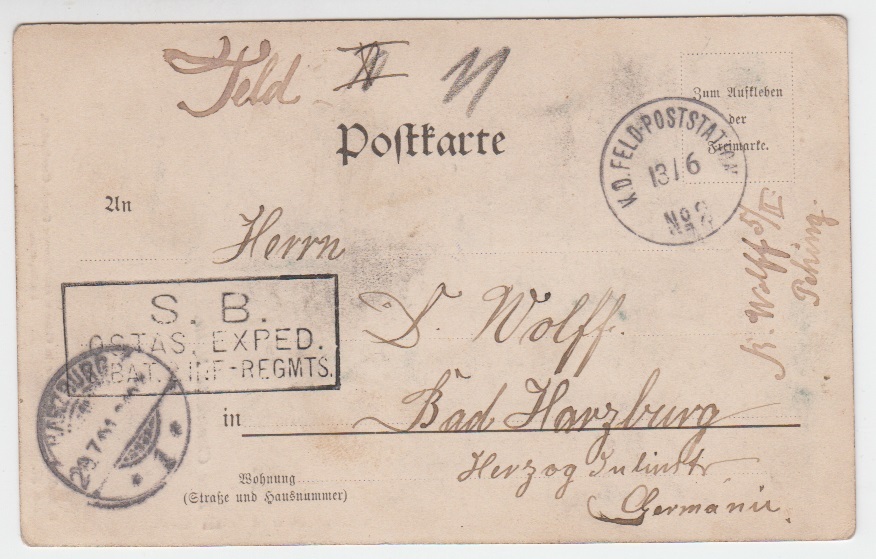 Feld
Postkarte
Zum Aufkleben
der
Freimarke.
K.D. FELD-POSTSTATION
13/6
No 2
An
Herrn
D. Wolff.
in Bad Harzburg
Herzog Juliusstr
Germanie.
K. Wolff 5/II
Peking.
S. B.
OSTAS. EXPED.
BAT. INF-REGMTS.
HARZBURG
29.7.01
* 1 *
Wohnung
(Straße und Hausnummer)